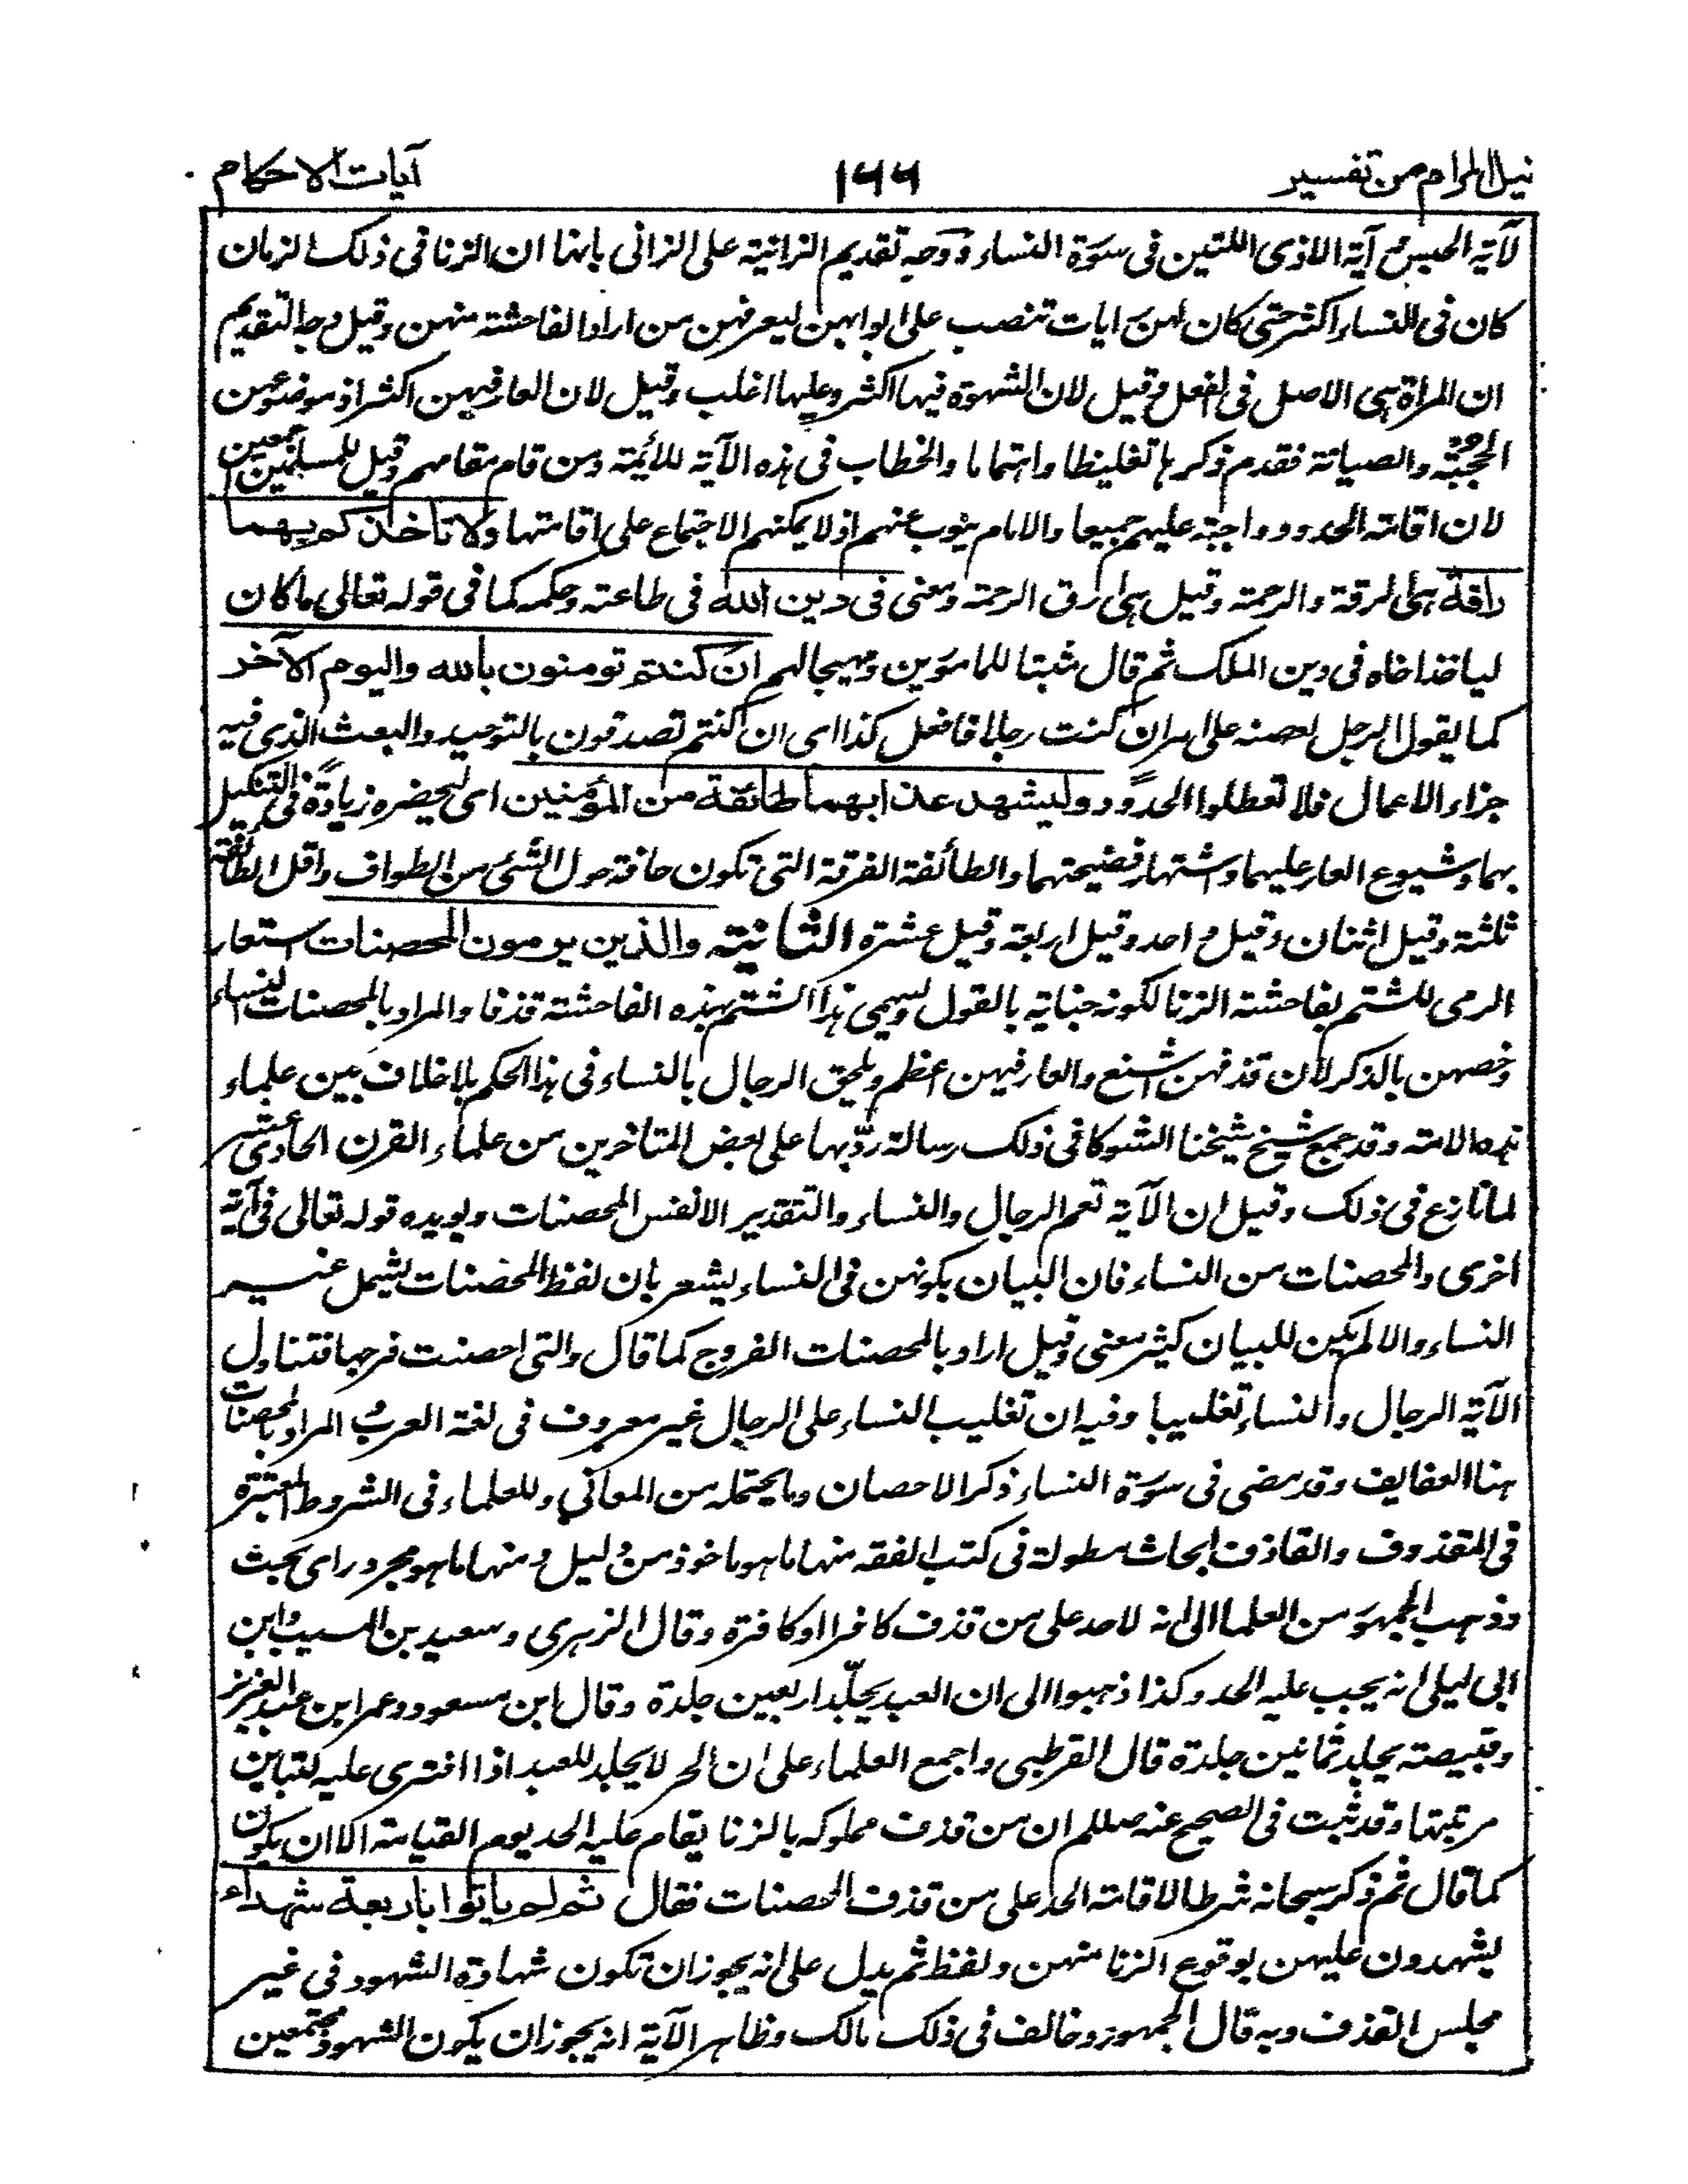 نيل المرام من تفسير
١٦٦
آيات الاحكام
لآية الحبس و آية الاذى اللتين فى سورة النساء و وجه تقديم الزانية على الزانى ههنا ان الزنا فى ذلك الزمان
كان فى النساء اكثر حتى كان لهن رايات تنصب على ابوابهن ليعرفهن من اراد الفاحشة منهن وقيل وجه التقديم
ان المراة هى الاصل فى الفعل وقيل لان الشهوة فيها اكثر وعليها اغلب وقيل لان العار فيهن اكثر اذ موضوعهن
الحجبة والصيانة فقدم ذكرها تغليظا واهتماما والخطاب فى هذه الآية للائمة ومن قام مقامهم وقيل للمسلمين اجمعين
لان اقامة الحدود واجبة عليهم جميعا والامام ينوب عنهم اذ لا يمكنهم الاجتماع على اقامتها ولا تاخذكم بهما
رافة هى الرقة والرحمة وقيل هى ارق الرحمة ومعنى فى دين الله فى طاعته وحكمه كما فى قوله تعالى ما كان
لياخذ اخاه فى دين الملك ثم قال مثبتا للمامورين ومهيجا لهم ان كنتم تومنون بالله واليوم الآخر
كما يقول الرجل لحضه على امر ان كنت رجلا فافعل كذا اى ان كنتم تصدقون بالتوحيد والبعث الذى فيه
جزاء الاعمال فلا تعطلوا الحدود وليشهد عذابهما طائفة من المؤمنين اى ليحضره زيادة فى التنكيل
بهما وشيوع العار عليهما واشتهار فضيحتهما والطائفة الفرقة التى تكون حافة حول الشئ من الطواف واقل الطائفة
ثلثة وقيل اثنان وقيل واحد وقيل اربعة وقيل عشرة الثانية والذين يرمون المحصنات استعار
الرمى للشتم بفاحشة الزنا لكونه جناية بالقول ويسمى هذا الشتم بهذه الفاحشة قذفا والمراد بالمحصنات النساء
وخصهن بالذكر لان قذفهن اشنع والعار فيهن اعظم ويلحق الرجال بالنساء فى هذا الحكم بلا خلاف بين علماء
هذه الامة وقد جمع شيخ شيخنا الشوكانى فى ذلك رسالة رد بها على بعض المتاخرين من علماء القرن الحادى عشر
لما نازع فى ذلك وقيل ان الآية تعم الرجال والنساء والتقدير الانفس المحصنات ويويده قوله تعالى فى آية
اخرى والمحصنات من النساء فان البيان بكونهن فى النساء يشعر بان لفظ المحصنات يشمل غير
النساء والا لم يكن للبيان كثير معنى وقيل اراد بالمحصنات الفروج كما قال والتى احصنت فرجها فتناول
الآية الرجال والنساء تغليبا وفيه ان تغليب النساء على الرجال غير معروف فى لغة العرب و المراد بالمحصنات
هنا العفايف وقد مضى فى سورة النساء ذكر الاحصان وما يحتمله من المعانى وللعلماء فى الشروط المعتبرة
فى المقذوف والقاذف ابحاث مطولة فى كتب الفقه منها ما هو ماخوذ من دليل و منها ما هو مجرد راى بحت
وذهب الجمهور من العلماء الى انه لا حد على من قذف كافرا او كافرة وقال الزهرى وسعيد بن المسيب وابن
ابى ليلى انه يجب عليه الحد وكذا ذهبوا الى ان العبد يجلد اربعين جلدة وقال ابن مسعود وعمر ابن عبد العزيز
وقبيصة يجلد ثمانين جلدة قال القرطبى واجمع العلماء على ان الحر لا يجلد للعبد اذا افترى عليه لتباين
مرتبتهما وقد ثبت فى الصحيح عنه صللم ان من قذف مملوكه بالزنا يقام عليه الحد يوم القيامة الا ان يكون
كما قال ثم ذكر سبحانه شرطا لاقامة الحد على من قذف المحصنات فقال ثم لم ياتوا باربعة شهداء
يشهدون عليهن بوقوع الزنا منهن ولفظ ثم يدل على انه يجوز ان تكون شهادة الشهود فى غير
مجلس القذف وبه قال الجمهور وخالف فى ذلك مالك وظاهر الآية انه يجوز ان يكون الشهود مجتمعين